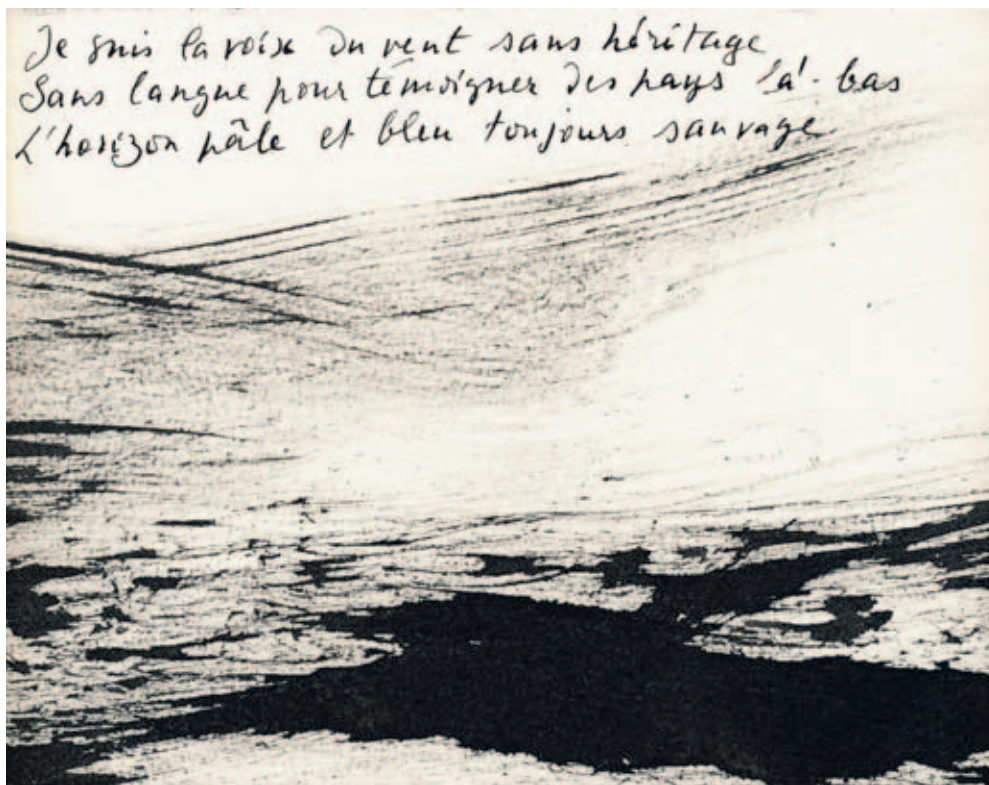 Je suis la voix du vent sans héritage
Sans langue pour témoigner des pays là-bas
L'horizon pâle et bleu toujours sauvage